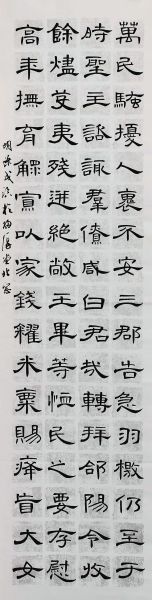 萬民騷擾人裹不安三郡告急羽檄仍至于
時聖主諮諏羣僚咸曰君哉轉拜郃陽令收
餘燼芟夷殘迸絕敞王畢等恤民之要存慰
高年撫育鰥寡以家錢糴米粟賜癃盲大女